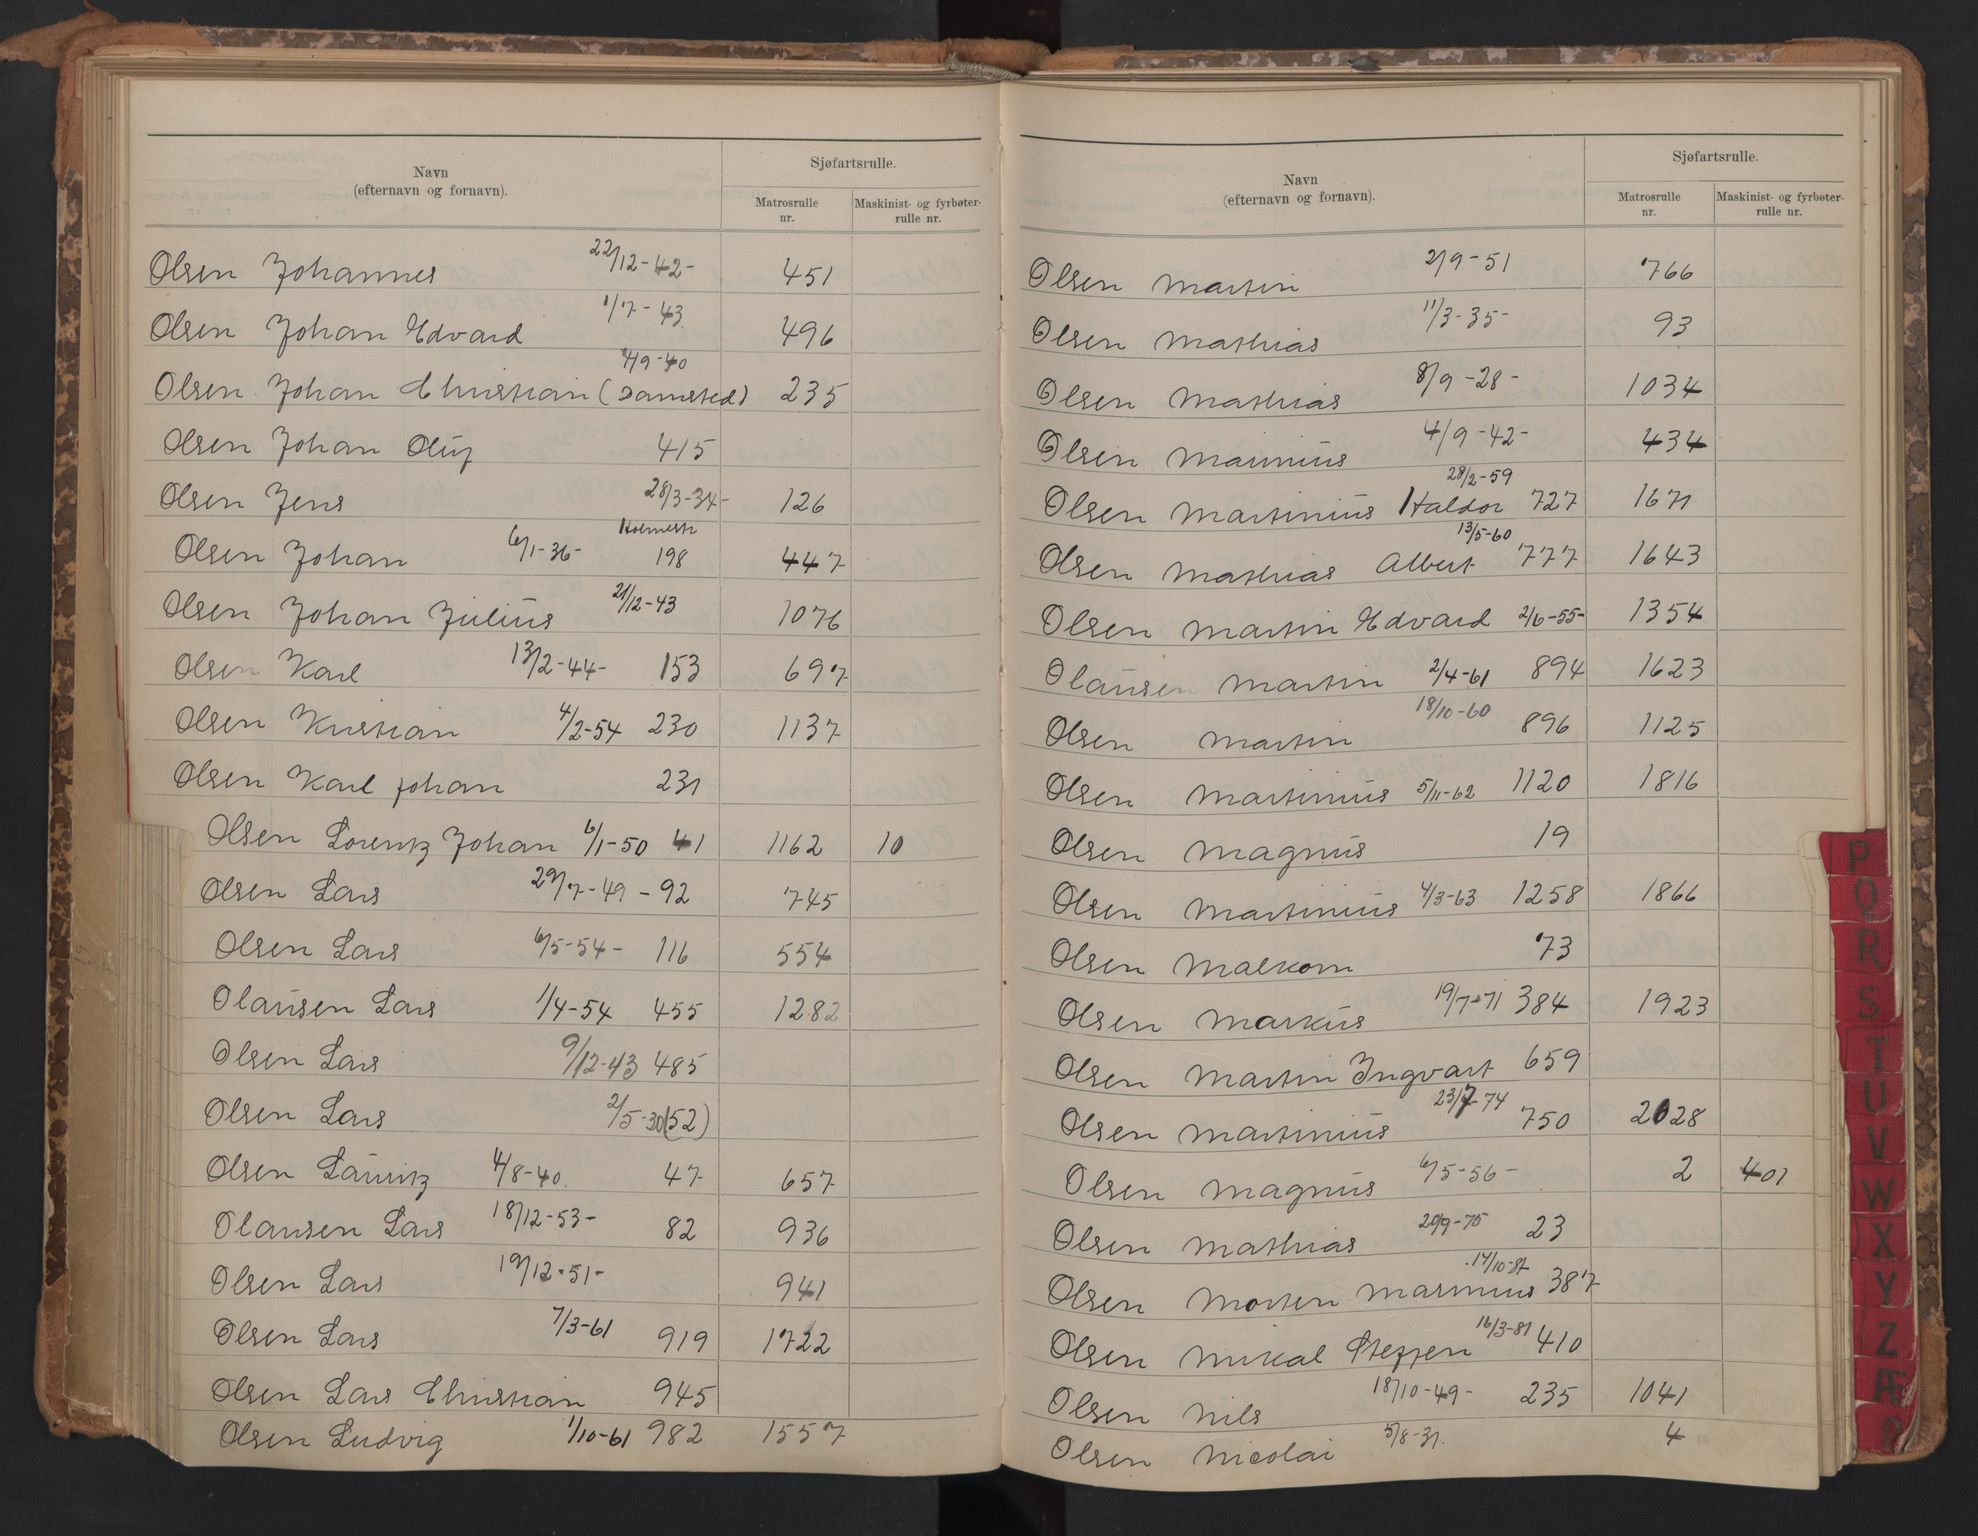 Navn
(efternavn og fornavn).
Sjøfartsrulle.
Matrosrulle nr.
Maskinist- og fyrbøter-rulle nr.
Olsen Johannes 22/12-42- 451
Olsen Johan Edvard 1/7-43 496
Olsen Johan Christian (Damsted) 4/9-40 235
Olsen Johan Oluf 415
Olsen Jens 28/3-34- 126
Olsen Johan 6/1-36- Holmestr 198 447
Olsen Johan Julius 21/12-43 1076
Olsen Karl 13/2-44- 153 697
Olsen Kristian 4/2-54 230 1137
Olsen Karl Johan 231
Olsen Lorentz Johan 6/1-50 41 1162 10
Olsen Lars 29/7-49- 92 745
Olsen Lars 6/5-54- 116 554
Olausen Lars 1/4-54 455 1282
Olsen Lars 9/12-43 485
Olsen Lars 2/5-30 (52)
Olsen Lauritz 4/8-40. 47 657
Olausen Lars 18/12-53- 82 936
Olsen Lars 19/12-51- 941
Olsen Lars 7/3-61 919 1722
Olsen Lars Christian 945
Olsen Ludvig 1/10-61 982 1557
Navn
(efternavn og fornavn).
Sjøfartsrulle.
Matrosrulle nr.
Maskinist- og fyrbøter-rulle nr.
Olsen Martin 2/9-51 766
Olsen Mathias 11/3-35- 93
Olsen Mathias 8/9-28- 1034
Olsen Marinius 4/9-42- 434
Olsen Martinius Haldor 28/2-59 727 1671
Olsen Mathias Albert 13/5-60 777 1643
Olsen Martin Edvard 2/6-55- 1354
Olausen Martin 2/4-61 894 1623
Olsen Martin 18/10-60 896 1125
Olsen Martinius 5/11-62 1120 1816
Olsen Magnus 19
Olsen Martinius 4/3-63 1258 1866
Olsen Malkom 73
Olsen Markus 19/7-71 384 1923
Olsen Martin Ingvart 659
Olsen Martinius 23/7-74 750 2028
Olsen Magnus 6/5-56- 2 401
Olsen Mathias 20/9-75 23
Olsen Morten Marinius 14/10-87 387
Olsen Mikal Steffen 16/3-81 410
Olsen Nils 18/10-49- 235 1041
Olsen Nicolai 5/8-31. 4
P
Q
R
S
T
U
V
W
X
Y
Z
Æ